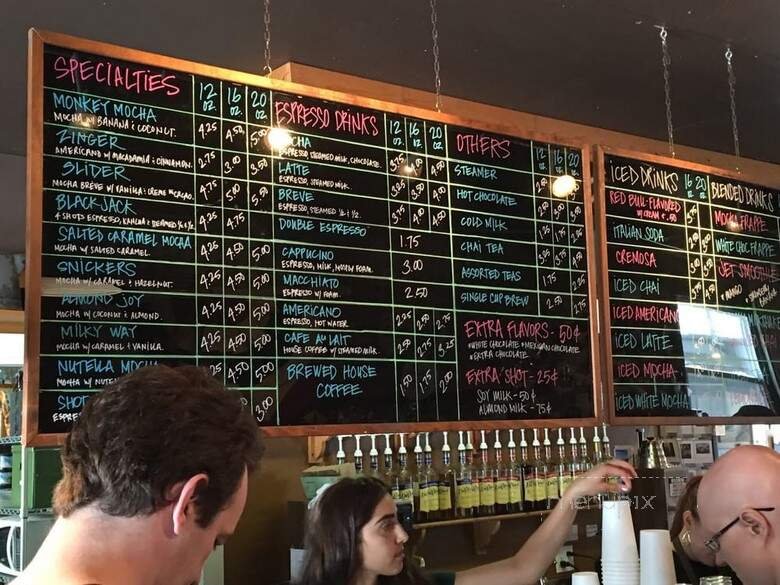 SPECIALTIES 12 OZ. 16 OZ. 20 OZ.
MONKEY MOCHA 4.25 4.50 5.00
MOCHA W/ BANANA & COCONUT.
ZINGER 2.75 3.00 3.50
AMERICANO W/ MACADAMIA & CINNAMON.
SLIDER 4.75 5.00
MOCHA BREVE W/ VANILLA & CREME de CACAO.
BLACKJACK 4.25 4.75
4 SHOTS ESPRESSO, KAHLUA & STEAMED ½ & ½.
SALTED CARAMEL MOCHA 4.25 4.50 5.00
MOCHA W/ SALTED CARAMEL
SNICKERS 4.25 4.50 5.00
MOCHA W/ CARAMEL & HAZELNUT.
ALMOND JOY 4.25 4.50 5.00
MOCHA W/ COCONUT & ALMOND.
MILKY WAY 4.25 4.50 5.00
MOCHA W/ CARAMEL & VANILLA.
NUTELLA MOCHA 4.25 4.50 5.00
MOCHA W/ NUTELLA
SHOT 3.00
ESPRESSO
ESPRESSO DRINKS 12 16 20
MOCHA
ESPRESSO, STEAMED MILK, CHOCOLATE.
LATTE
ESPRESSO, STEAMED MILK.
BREVE
ESPRESSO, STEAMED ½ & ½.
DOUBLE ESPRESSO 1.75
CAPPUCINO 3.00
ESPRESSO, MILK, FOAM.
MACCHIATO 2.50
ESPRESSO W/ FOAM.
AMERICANO 2.25 2.50
ESPRESSO, HOT WATER.
CAFE AU LAIT
HOUSE COFFEE W/ STEAMED MILK.
BREWED HOUSE COFFEE 1.50 1.75 2.00
OTHERS 12 16 20
STEAMER
HOT CHOCOLATE
COLD MILK
CHAI TEA
ASSORTED TEAS
SINGLE CUP BREW 2.50
EXTRA FLAVORS - 50¢
*WHITE CHOCOLATE *MEXICAN CHOCOLATE
*EXTRA CHOCOLATE
EXTRA SHOT - 25¢
SOY MILK - 50¢
ALMOND MILK - 75¢
ICED DRINKS 16 20
RED BULL FLAVORED
W/ CREAM + .50
ITALIAN SODA
CREMOSA
ICED CHAI
ICED AMERICANO
ICED LATTE
ICED MOCHA
ICED WHITE MOCHA
BLENDED DRINKS
MOCHA FRAPPE
WHITE CHOC FRAPPE
JET SMOOTHIE
* MANGO
menupix